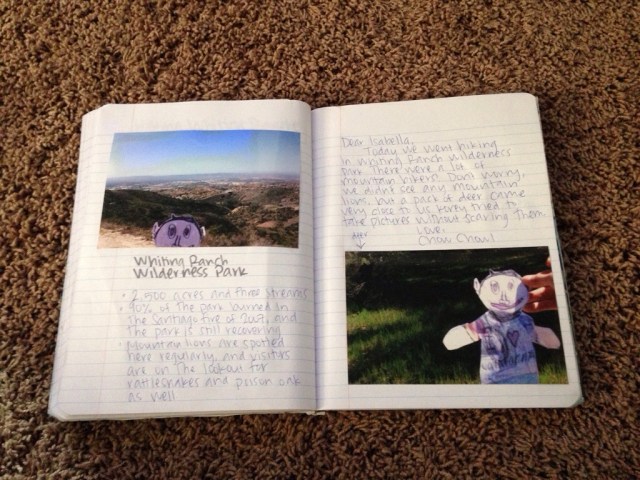 Whiting Ranch
Wilderness Park
• 2,500 acres and three streams
• 90% of the park burned in
the Santiago Fire of 2007, and
the park is still recovering
• Mountain lions are spotted
here regularly, and visitors
are on the lookout for
rattlesnakes and poison oak
as well
Dear Isabella,
Today we went hiking
in Whiting Ranch Wilderness
Park. There were a lot of
mountain bikers! Don't worry,
we didn't see any mountain
lions, but a pack of deer came
very close to us. Katy tried to
take pictures without scaring them.
Love,
Chow Chow!
I